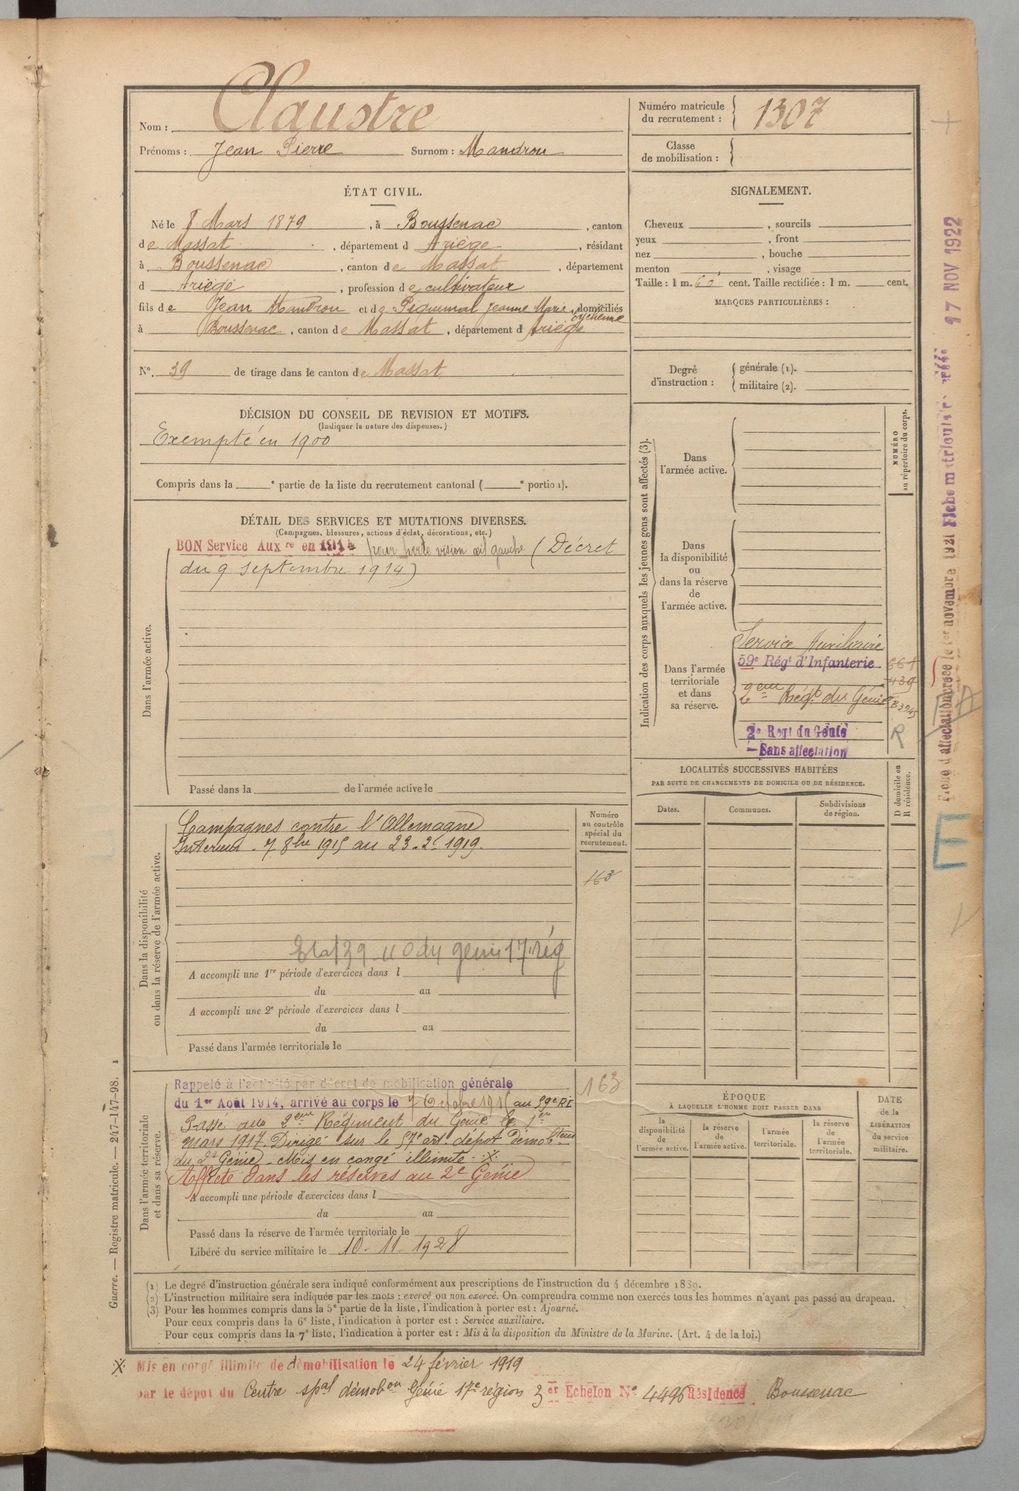 Nom : Claustre
Prénoms : Jean Pierre Surnom : Mandrou
Numéro matricule
du recrutement : 1307
Classe
de mobilisation :
ÉTAT CIVIL.
Né le 8 Mars 1879, à Boussenac, canton
de Massat, département d Ariège, résidant
à Boussenac, canton de Massat, département
d Ariège, profession de cultivateur
fils de Jean Mandrou et de Piquemal Jeanne Marie, domiciliés
à Boussenac, canton de Massat, département d Ariège
N° 39 de tirage dans le canton de Massat
SIGNALEMENT.
Cheveux , sourcils
yeux , front
nez , bouche
menton , visage
Taille : 1 m. 60 cent. Taille rectifiée : 1 m. cent.
MARQUES PARTICULIÈRES :
Degré
d'instruction :
générale (1).
militaire (2).
DÉCISION DU CONSEIL DE REVISION ET MOTIFS.
(Indiquer la nature des dispenses.)
Exempté en 1900
Compris dans la e partie de la liste du recrutement cantonal ( e portion).
DÉTAIL DES SERVICES ET MUTATIONS DIVERSES.
(Campagnes, blessures, actions d'éclat, décorations, etc.)
BON Service Aux re en 1914 pour perte vision œil gauche (Décret
du 9 septembre 1914)
Dans l'armée active.
Passé dans la de l'armée active le
Indication des corps auxquels les jeunes gens sont affectés (3).
NUMÉRO
au répertoire du corps.
Dans
l'armée active.
Dans
la disponibilité
ou
dans la réserve
de
l'armée active.
Dans l'armée
territoriale
et dans
sa réserve.
Service Auxiliaire
59e Régt d'Infanterie
2eme Régt du Génie
2e Regt du Génie
Sans affectation
R
LOCALITÉS SUCCESSIVES HABITÉES
PAR SUITE DE CHANGEMENTS DE DOMICILE OU DE RÉSIDENCE.
Dates.
Communes.
Subdivisions
de région.
D domicile ou
R résidence.
Dans la disponibilité
ou dans la réserve de l'armée active.
Campagnes contre l'Allemagne
Intérieur - 7 8bre 1915 au 23-2-1919
Numéro
au contrôle
spécial du
recrutement.
163
A accompli une 1re période d'exercices dans l
du au
A accompli une 2e période d'exercices dans l
du au
Passé dans l'armée territoriale le
Dans l'armée territoriale
et dans sa réserve.
Rappelé à l'activité par décret de mobilisation générale
du 1er Août 1914, arrivé au corps le 7 Octobre 1915 au 59e RI
163
Passé au 2eme Régiment du Génie le 1er
mars 1917. Dirigé sur le dépôt démobteur
du 2e Génie. Mis en congé illimité. X.
Affecté dans les réserves au 2e Génie
A accompli une période d'exercices dans l
du au
Passé dans la réserve de l'armée territoriale le
Libéré du service militaire le 10-11-1928
ÉPOQUE
À LAQUELLE L'HOMME DOIT PASSER DANS
la
disponibilité
de
l'armée active.
la réserve
de
l'armée active.
l'armée
territoriale.
la réserve
de
l'armée
territoriale.
DATE
de la
LIBÉRATION
du service
militaire.
(1) Le degré d'instruction générale sera indiqué conformément aux prescriptions de l'instruction du 4 décembre 1889.
(2) L'instruction militaire sera indiquée par les mots : exercé ou non exercé. On comprendra comme non exercés tous les hommes n'ayant pas passé au drapeau.
(3) Pour les hommes compris dans la 5e partie de la liste, l'indication à porter est : Ajourné.
Pour ceux compris dans la 6e liste, l'indication à porter est : Service auxiliaire.
Pour ceux compris dans la 7e liste, l'indication à porter est : Mis à la disposition du Ministre de la Marine. (Art. 4 de la loi.)
X. Mis en congé illimité de démobilisation le 24 février 1919
par le dépôt du Centre spal démobon Génie 17e région 3er Echelon N° 4496 Résidence Boussenac
Guerre. — Registre matricule. — 247-147-98. 1
17 NOV 1922
E